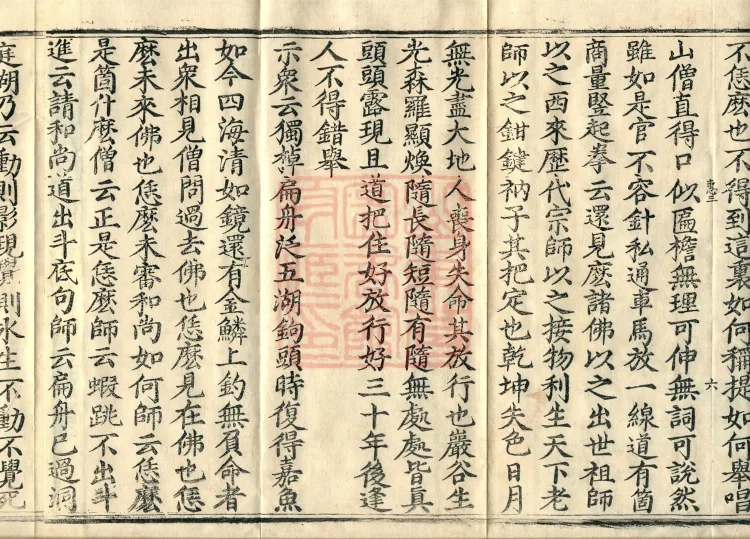 不恁麽也不得到這裏如何稱提如何舉唱
山僧直得口似匾檐無理可伸無詞可說然
雖如是官不容針私通車馬放一線道有箇
商量竪起拳云還見麽諸佛以之出世祖師
以之西來歷代宗師以之接物利生天下老
師以之鉗鍵衲子其把定也乾坤失色日月
無光盡大地人喪身失命其放行也巖谷生
光森羅顯煥隨長隨短隨有隨無處處皆真
頭頭露現且道把住好放行好三十年後逢
人不得錯舉
示衆云獨棹扁舟泛五湖鉤頭時復得嘉魚
如今四海清如鏡還有金鱗上釣無負命者
出衆相見僧問過去佛也恁麽見在佛也恁
麽未來佛也恁麽未審和尚如何師云恁麽
是箇什麽僧云正是恁麽師云蝦跳不出斗
進云請和尚道出斗底句師云扁舟已過洞
庭湖乃云動則影現覺則冰生不動不覺死
六